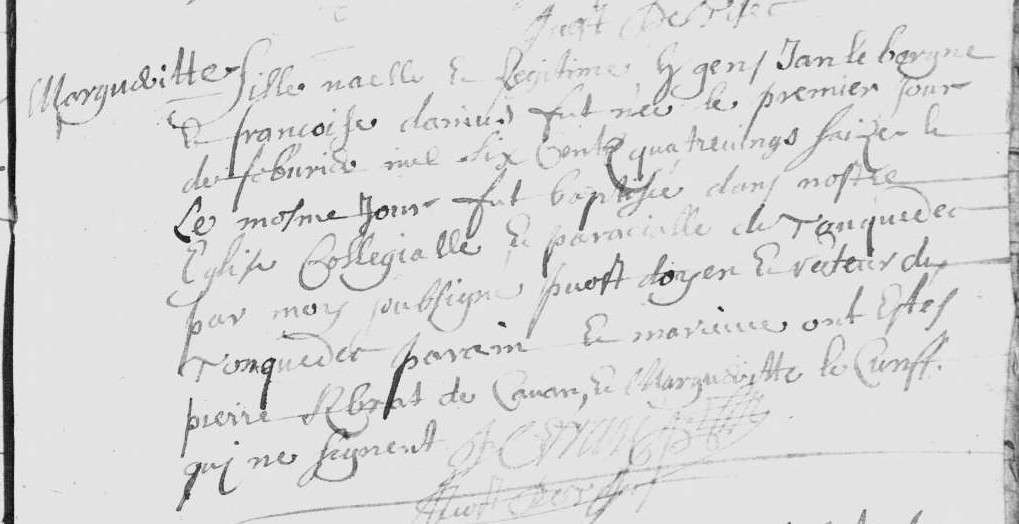 Margueritte fille naelle et legitime des gens Jan le bargne
et francoise daniel fut née le premier jour
de feburier mil six cents quatrevings saize le
le mesme jour fut baptisée dans nostre
Eglise Collegialle et parocialle de Tonquedec
par moy soubsigné doyen et recteur de
Tonquedec parain et mareinne ont estes
pierre de Cavan, et Margueritte le Cunff.
qui ne signent